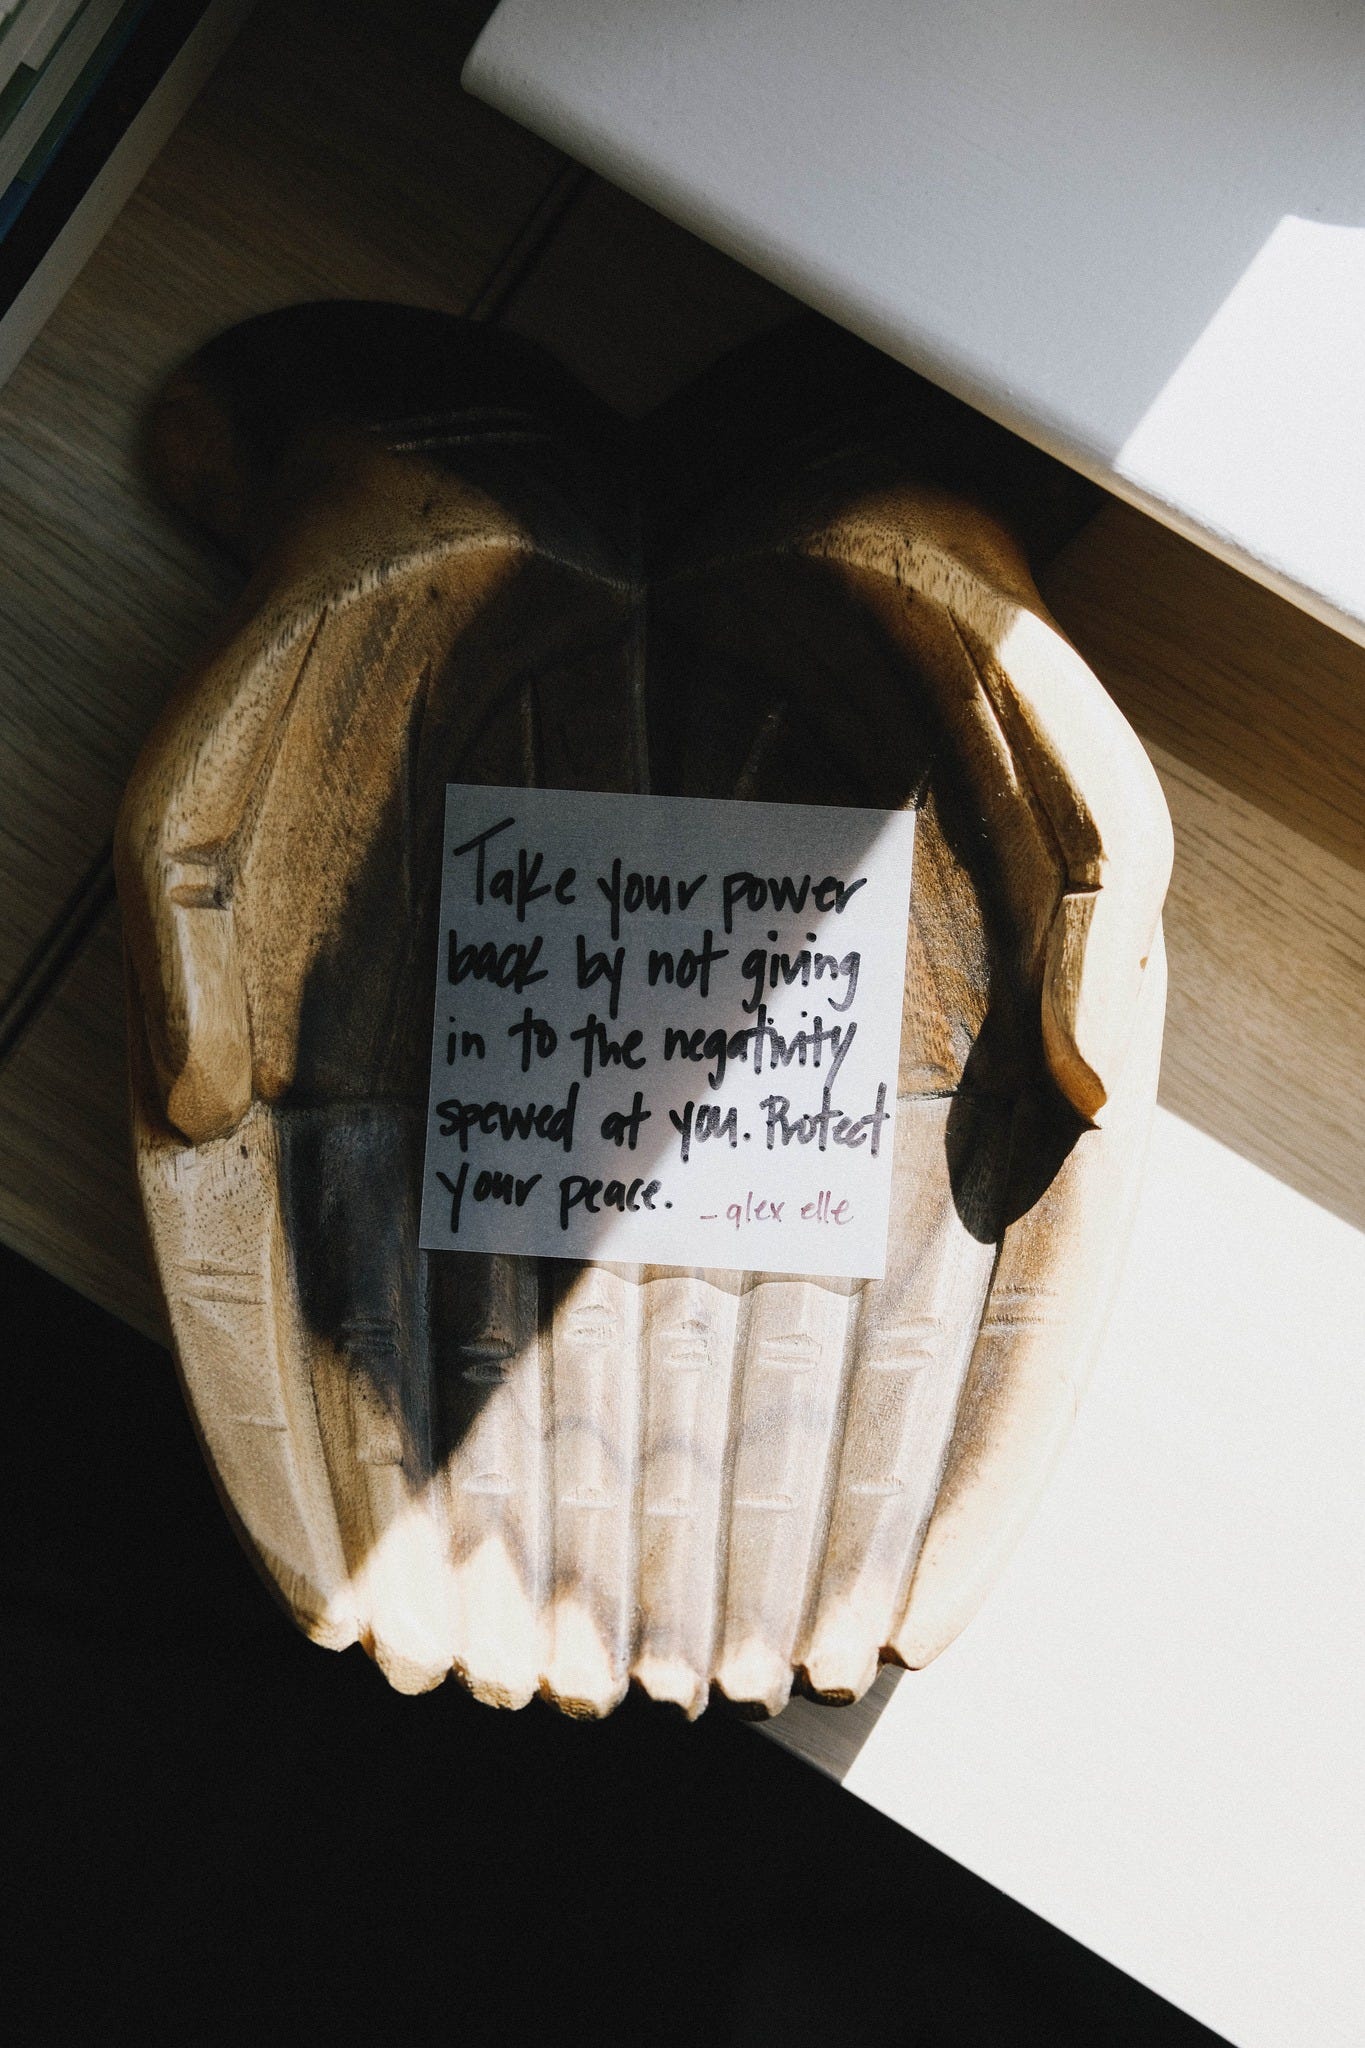 Take your power
back by not giving
in to the negativity
spewed at you. Protect
your peace.
- alex elle